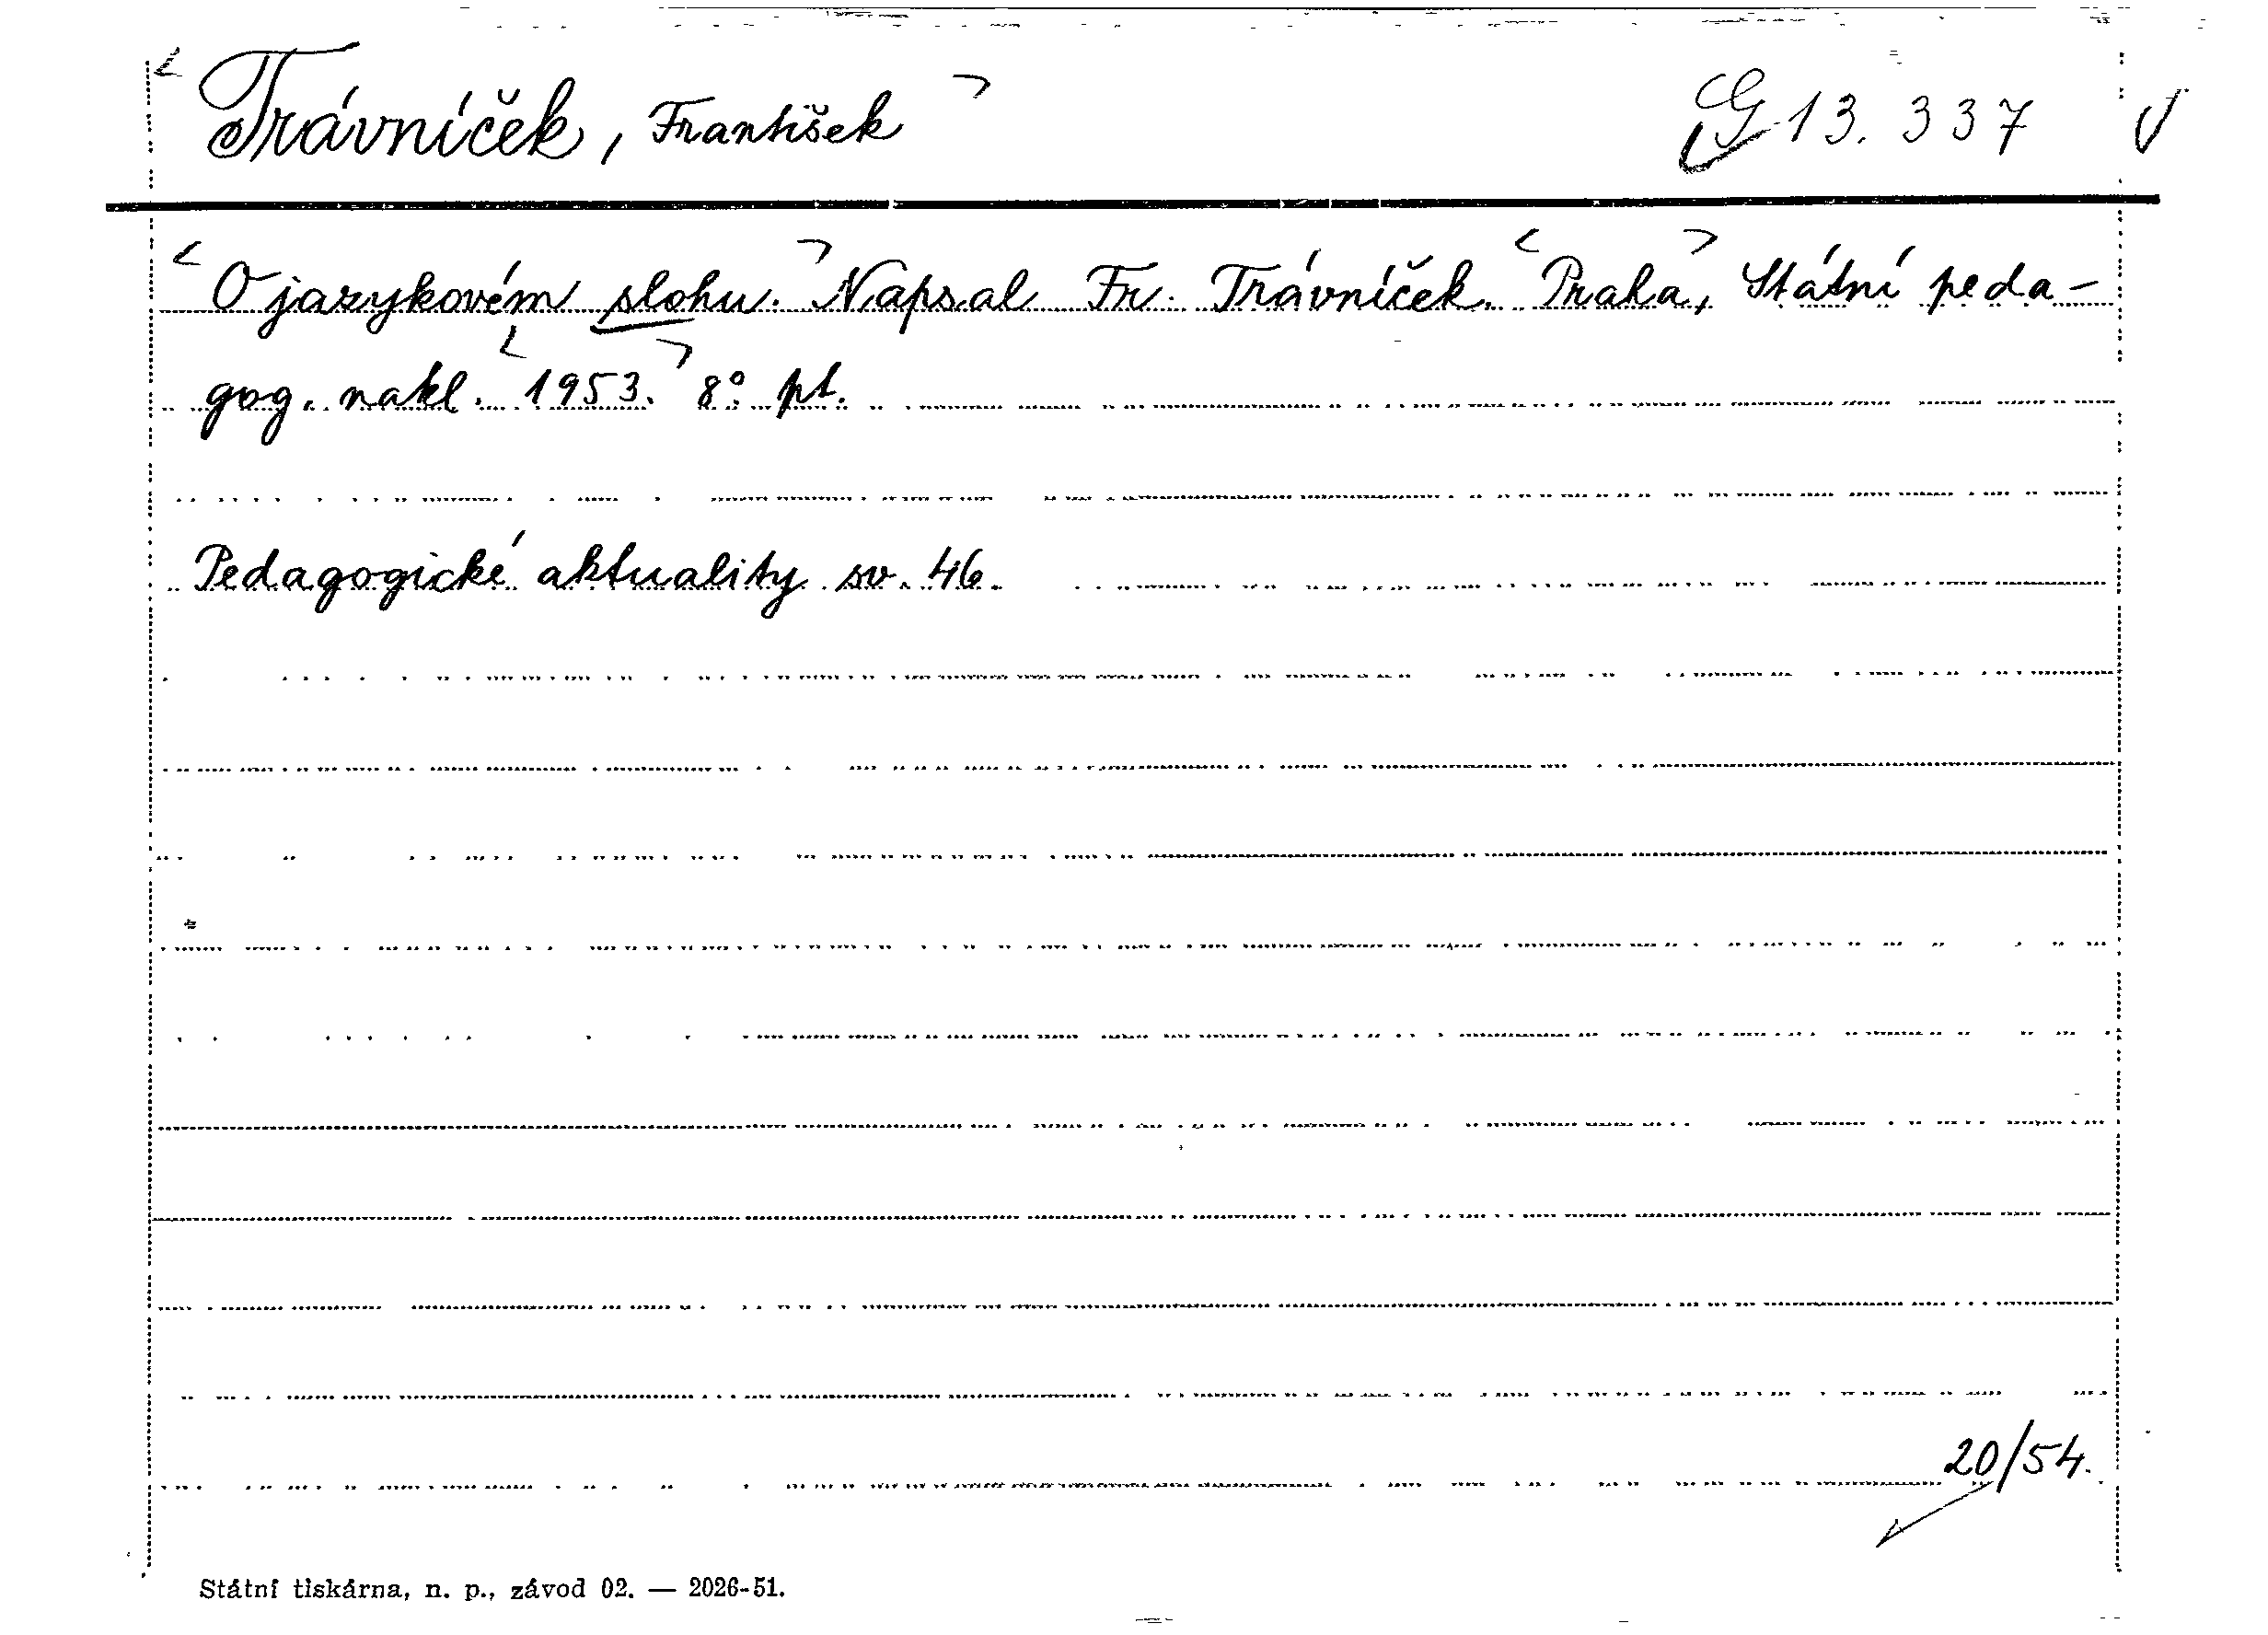 Trávníček, František G 13.337
O jazykovém slohu. Napsal Fr. Trávníček. Praha, Státní peda-
gog. nakl. 1953. 8° pt.
Pedagogické aktuality sv. 46.
20/54.
Státní tiskárna, n. p., závod 02. — 2026-51.